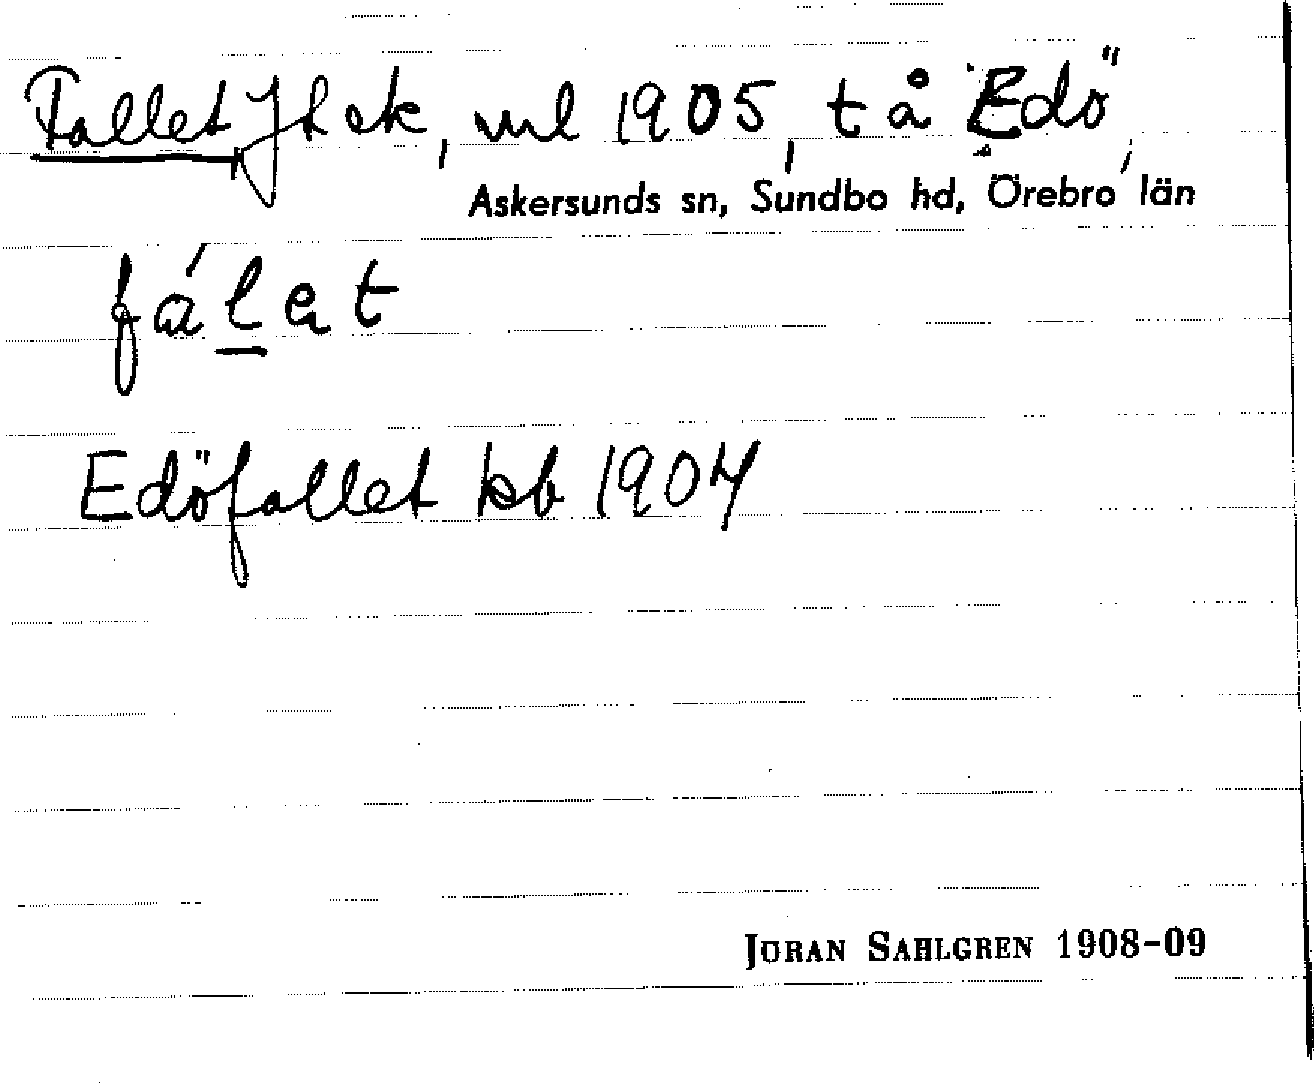 Fallet, Jhek, ml 1905, t å Edö,
Askersunds sn, Sundbo hd, Örebro län
fálet
Edöfallet kb 1904
JÖRAN SAHLGREN 1908-09